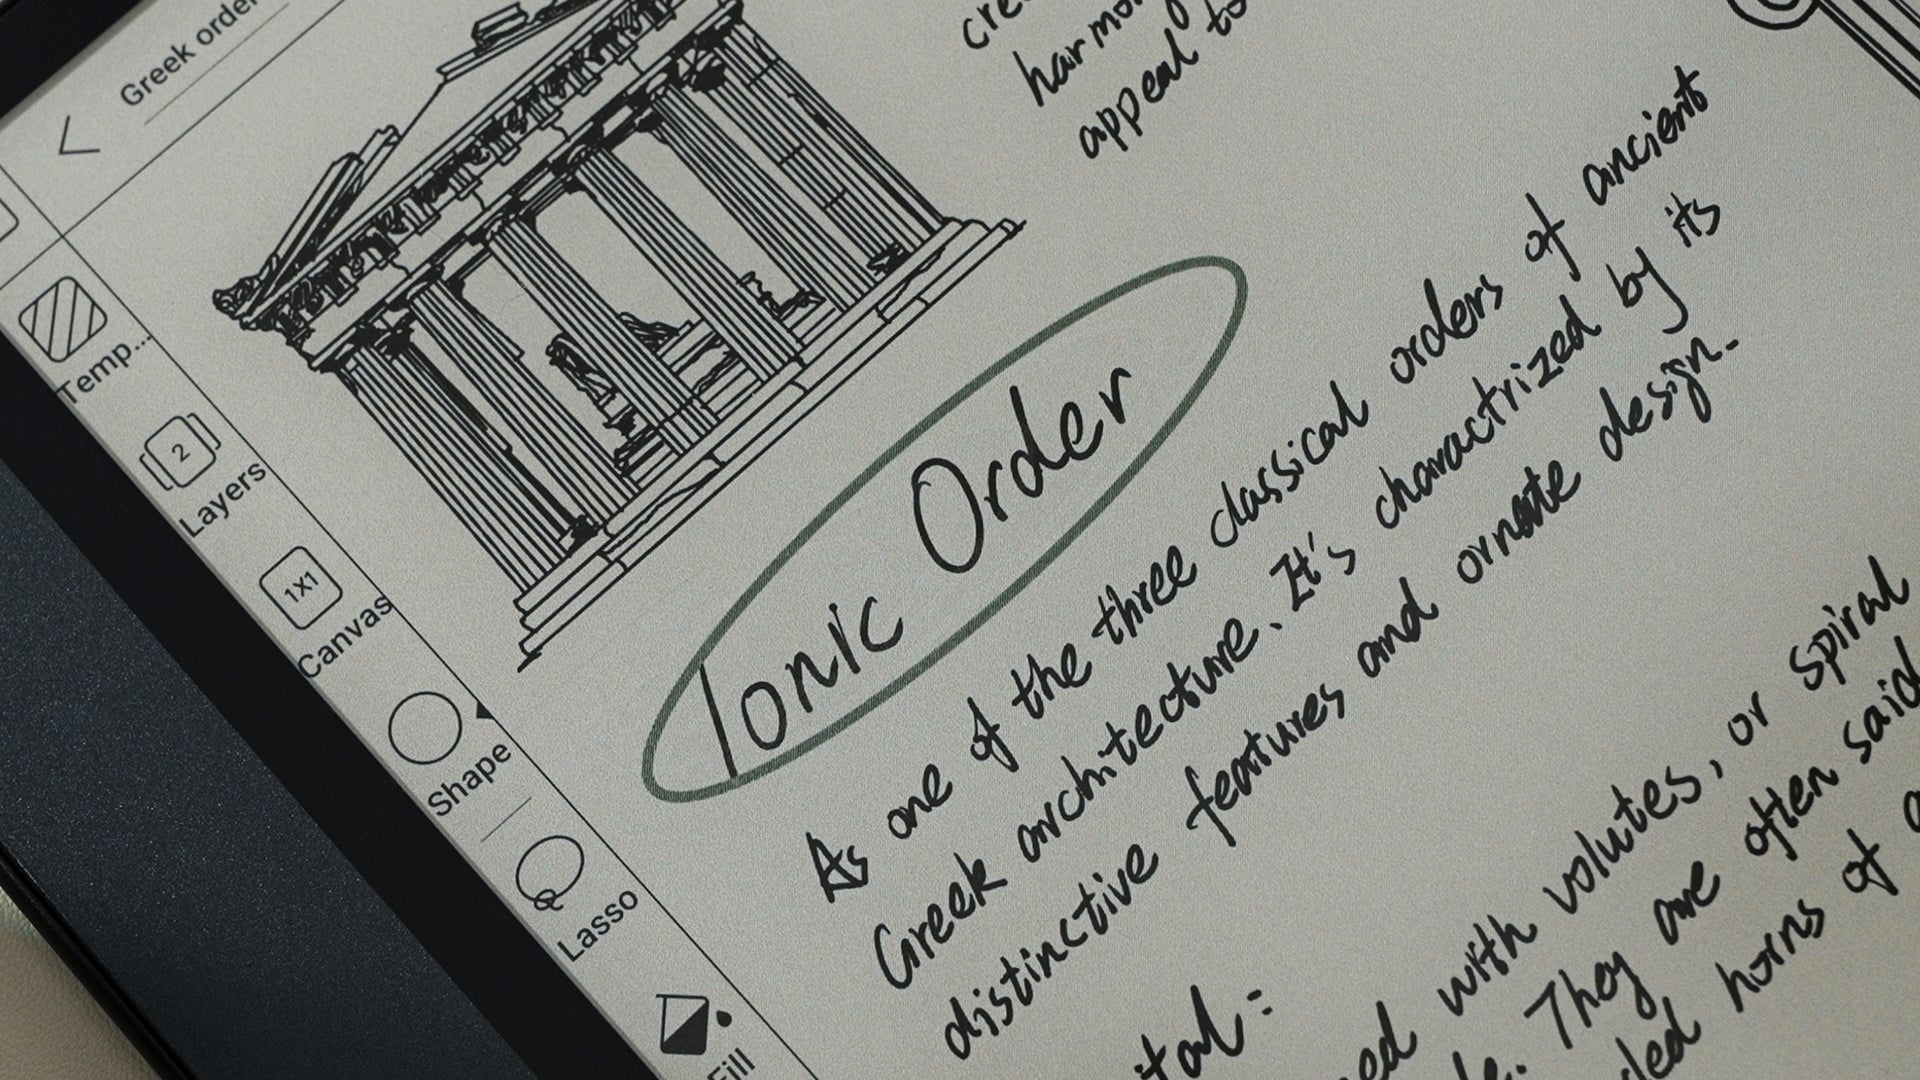 Greek order
Temp...
2
Layers
1X1
Canvas
Shape
Lasso
Fill
appeal to
Ionic Order
As one of the three classical orders of ancient
Greek architecture. It's charactrized by its
distinctive features and ornate design.
with volutes, or spiral
They are often said
horns of